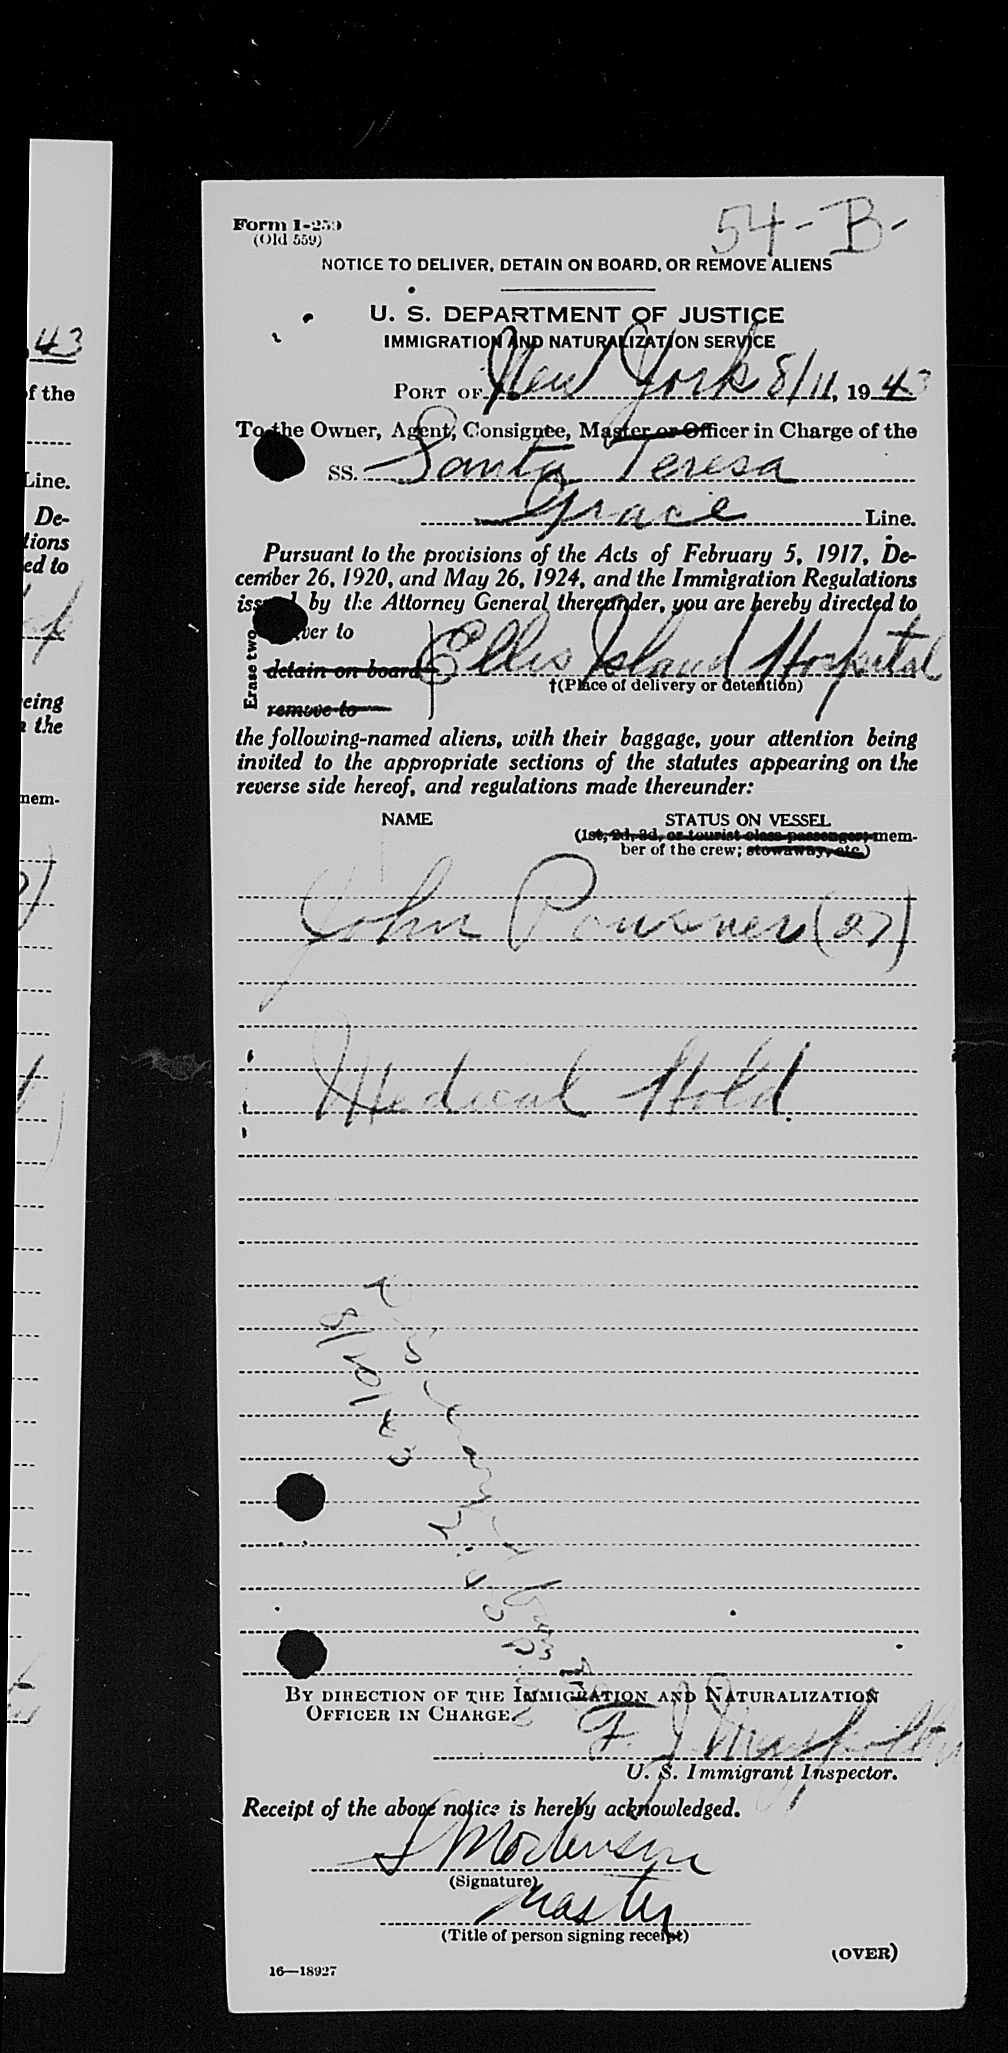 43
of the
Line.
De-
tions
ed to
eing
the
mem-
Form I-259
(Old 559)
54-B-
NOTICE TO DELIVER, DETAIN ON BOARD, OR REMOVE ALIENS
U. S. DEPARTMENT OF JUSTICE
IMMIGRATION AND NATURALIZATION SERVICE
PORT OF New York 8/11, 1943
To the Owner, Agent, Consignee, Master or Officer in Charge of the
SS. Santa Teresa
Grace Line.
Pursuant to the provisions of the Acts of February 5, 1917, De-
cember 26, 1920, and May 26, 1924, and the Immigration Regulations
issued by the Attorney General thereunder, you are hereby directed to
Erase two
deliver to
detain on board
remove to
Ellis Island Hospital
†(Place of delivery or detention)
the following-named aliens, with their baggage, your attention being
invited to the appropriate sections of the statutes appearing on the
reverse side hereof, and regulations made thereunder:
NAME STATUS ON VESSEL
(1st, 2d, 3d, or tourist class passenger; mem-
ber of the crew; stowaway, etc.)
John (27)
Medical Hold
8/20/43
BY DIRECTION OF THE IMMIGRATION AND NATURALIZATION
OFFICER IN CHARGE.
F. J.
U. S. Immigrant Inspector.
Receipt of the above notice is hereby acknowledged.
(Signature)
Master
(Title of person signing receipt)
(OVER)
16—18927